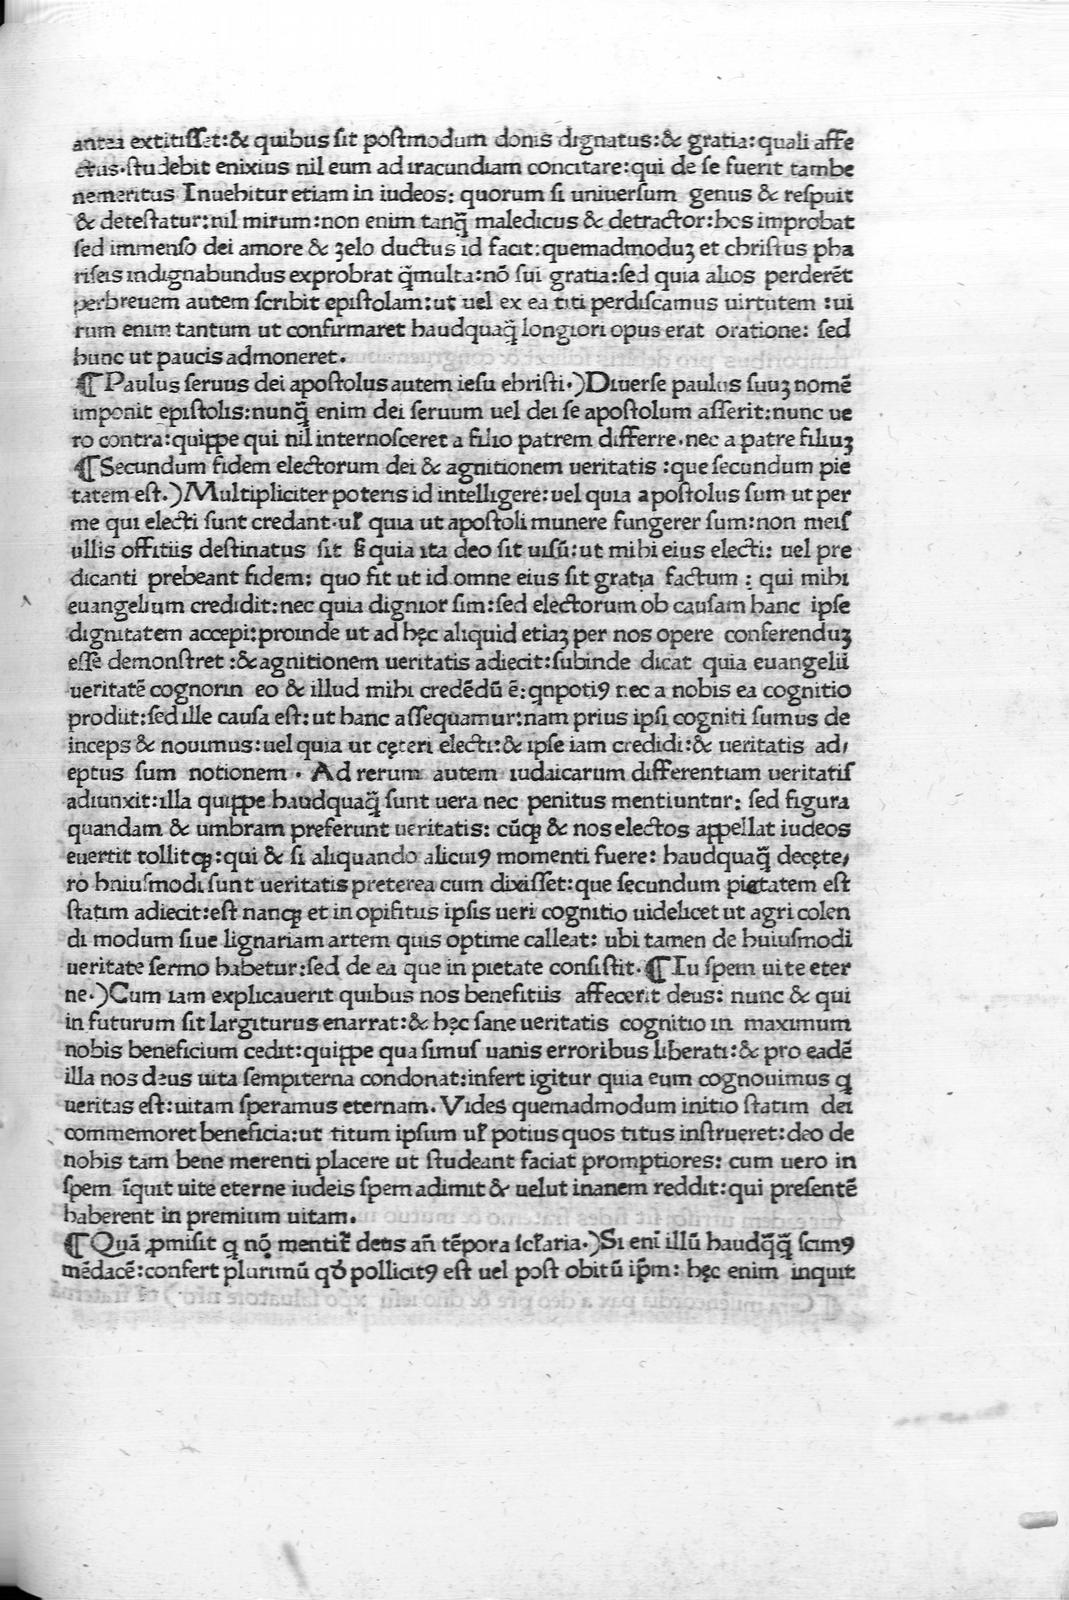 antea extitisset:& quibus sit postmodum donis dignatus:& gratia:quali affe
ctus.studebit enixius nil eum ad iracundiam concitare:qui de se fuerit tambe
nemeritus Inuehitur etiam in iudeos: quorum si uniuersum genus & respuit
& detestatur:nil mirum:non enim tanq̃ maledicus & detractor:hos improbat
sed immenso dei amore & zelo ductus id facit:quemadmoduꝫ et christus pha
riseis indignabundus exprobrat q̃multa:nõ sui gratia:sed quia alios perderẽt
perbreuem autem scribit epistolam:ut uel ex ea titi perdiscamus uirtutem :ui
rum enim tantum ut confirmaret haudquaq̃ longiori opus erat oratione: sed
hunc ut paucis admoneret.
¶ Paulus seruus dei apostolus autem iesu christi.)Diuerse paulus suuꝫ nomẽ
imponit epistolis:nunq̃ enim dei seruum uel dei se apostolum asserit:nunc ue
ro contra:quippe qui nil internosceret a filio patrem differre.nec a patre filiuꝫ
¶Secundum fidem electorum dei & agnitionem ueritatis :que secundum pie
tatem est.)Multipliciter poteris id intelligere:uel quia apostolus sum ut per
me qui electi sunt credant.ul̕ quia ut apostoli munere fungerer sum:non meis
ullis offitiis destinatus sit ꝭ quia ita deo sit uisũ:ut mihi eius electi: uel pre
dicanti prebeant fidem: quo fit ut id omne eius sit gratia factum : qui mihi
euangelium credidit:nec quia dignior sim:sed electorum ob causam hanc ipse
dignitatem accepi:proinde ut ad hęc aliquid etiaꝫ per nos opere conferenduꝫ
esse demonstret :& agnitionem ueritatis adiecit:subinde dicat quia euangelii
ueritatẽ cognorin eo & illud mihi credẽdũ ẽ:qnpotiꝰ nec a nobis ea cognitio
prodiit:sed ille causa est:ut hanc assequamur:nam prius ipsi cogniti sumus de
inceps & nouimus:uel quia ut cęteri electi:& ipse iam credidi:& ueritatis ad,
eptus sum notionem . Ad rerum autem iudaicarum differentiam ueritatis
adiunxit:illa quippe haudquaq̃ sunt uera nec penitus mentiuntur: sed figura
quandam & umbram preferunt ueritatis: cũqꝫ & nos electos appellat iudeos
euertit tollitqꝫ:qui & si aliquando alicuiꝰ momenti fuere: haudquaq̃ decęte,
ro huiusmodi sunt ueritatis preterea cum dixisset:que secundum pietatem est
statim adiecit:est nanqꝫ et in opifitus ipsis ueri cognitio uidelicet ut agri colen
di modum siue lignariam artem quis optime calleat: ubi tamen de huiusmodi
ueritate sermo habetur:sed de ea que in pietate consistit.¶ Iu spem uite eter
ne.)Cum iam explicauerit quibus nos benefitiis affecerit deus: nunc & qui
in futurum sit largiturus enarrat:& hęc sane ueritatis cognitio in maximum
nobis beneficium cedit:quippe qua simus uanis erroribus liberati:& pro eadẽ
illa nos deus uita sempiterna condonat:infert igitur quia eum cognouimus q̃
ueritas est:uitam speramus eternam. Vides quemadmodum initio statim dei
commemoret beneficia:ut titum ipsum ul̕ potius quos titus instrueret:deo de
nobis tam bene merenti placere ut studeant faciat promptiores: cum uero in
spem ĩquit uite eterne iudeis spem adimit & uelut inanem reddit:qui presentẽ
haberent in premium uitam.
¶ Quã ꝓmisit q nõ mentit̕ deus añ tẽpora scl̕aria.)Si enĩ illũ haudq̃q̃ scimꝰ
mẽdacẽ:confert plurimũ qđ pollicitꝰ est uel post obitũ ip̃m: hęc enim inquit